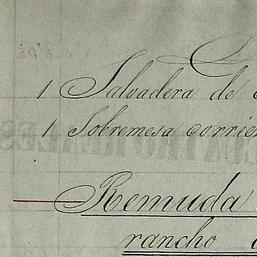 1 Salvadera de
1 Sobremesa corrien
Remuda
rancho